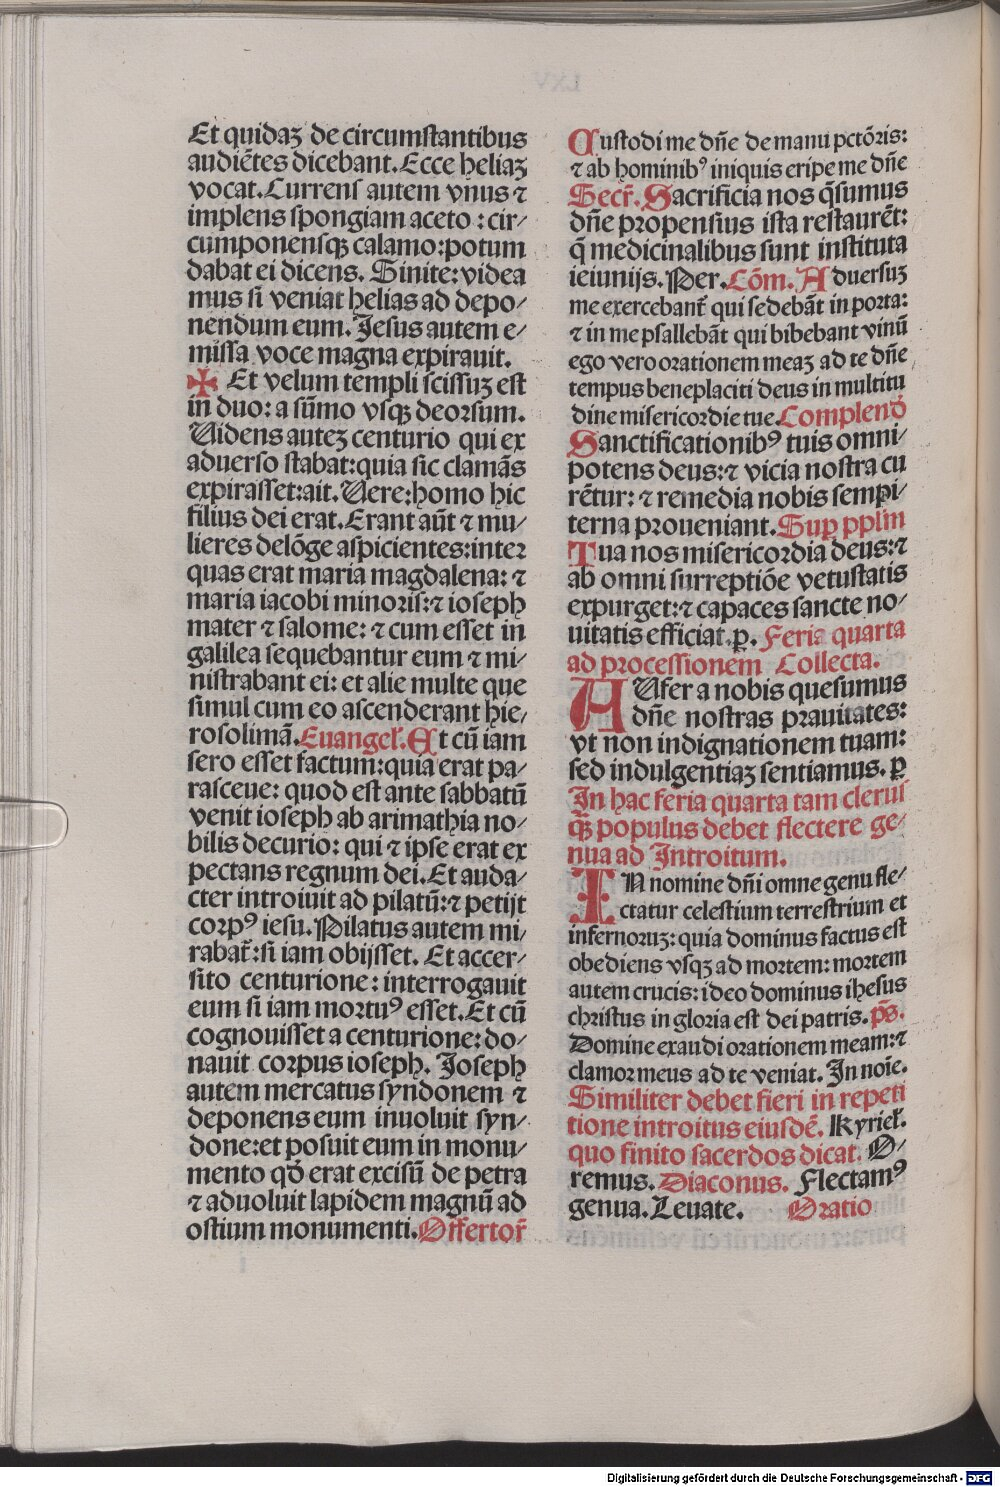 Et quidaꝫ de circumſtantibus
audiētes dicebant. Ecce heliaꝫ
vocat. Currens autem vnus ⁊
implens ſpongiam aceto : cir⸗
cumponenſqꝫ calamo: potum
dabat ei dicens. Sinite: videa
mus ſi veniat helias ad depo⸗
nendum eum. Jesus autem e⸗
miſſa voce magna expirauit.
✠ Et velum templi ſciſſuꝫ eſt
in duo: a ſūmo vſqꝫ deorſum.
Uidens auteꝫ centurio qui ex
aduerſo ſtabat: quia ſic clamās
expiraſſet: ait. Uere: homo hic
filius dei erat. Erant aūt ⁊ mu⸗
lieres delōge aſpicientes: inter
quas erat maria magdalena: ⁊
maria iacobi minoris: ⁊ ioſeph
mater ⁊ ſalome: ⁊ cum eſſet in
galilea ſequebantur eum ⁊ mi⸗
niſtrabant ei: et alie multe que
ſimul cum eo aſcenderant hie⸗
roſolimā. Euangel̄. Et cū iam
ſero eſſet factum: quia erat pa⸗
raſceue: quod eſt ante ſabbatū
venit ioſeph ab arimathia no⸗
bilis decurio: qui ⁊ ipſe erat ex
pectans regnum dei. Et auda⸗
cter introiuit ad pilatū: ⁊ petijt
corpꝰ ieſu. Pilatus autem mi⸗
rabat̄: ſi iam obijſſet. Et accer⸗
ſito centurione: interrogauit
eum ſi iam mortuꝰ eſſet. Et cū
cognouiſſet a centurione: do⸗
nauit corpus ioſeph. Joſeph
autem mercatus ſyndonem ⁊
deponens eum inuoluit ſyn⸗
done: et poſuit eum in monu⸗
mento qð erat exciſū de petra
⁊ aduoluit lapidem magnū ad
oſtium monumenti. Offertor̄
Cuſtodi me dn̄e de manu pctōris:
⁊ ab hominibꝰ iniquis eripe me dn̄e
Secr̄. Sacrificia nos q̄ſumus
dn̄e propenſius iſta reſtaurēt:
q̄ medicinalibus ſunt inſtituta
ieiunijs. Per. Cōm. Aduerſuꝫ
me exercebant̄ qui ſedebāt in porta:
⁊ in me pſallebāt qui bibebant vinū
ego vero orationem meaꝫ ad te dn̄e
tempus beneplaciti deus in multitu
dine miſericordie tue. Complenð
Sanctificationibꝰ tuis omni⸗
potens deus: ⁊ vicia noſtra cu
rētur: ⁊ remedia nobis ſempi⸗
terna proueniant. Suꝑ pplm̄
Tua nos miſericordia deus: ⁊
ab omni ſurreptiōe vetuſtatis
expurget: ⁊ capaces ſancte no⸗
uitatis efficiat. ꝑ. Feria quarta
ad proceſſionem Collecta.
AUfer a nobis queſumus
dn̄e noſtras prauitates:
vt non indignationem tuam:
ſed indulgentiaꝫ ſentiamus. ꝑ
In hac feria quarta tam clerus
qꝫ̄ populus debet flectere ge⸗
nua ad Introitum.
IN nomine dn̄i omne genu fle⸗
ctatur celeſtium terreſtrium et
infernoruꝫ: quia dominus factus eſt
obediens vſqꝫ ad mortem: mortem
autem crucis: ideo dominus iheſus
chriſtus in gloria eſt dei patris. p̄s.
Domine exaudi orationem meam: ⁊
clamor meus ad te veniat. In noīe.
Similiter debet fieri in repeti
tione introitus eiuſdē. Kyriel̄.
quo finito ſacerdos dicat. O⸗
remus. Diaconus. Flectamꝰ
genua. Leuate. Oratio
Digitalisierung gefördert durch die Deutsche Forschungsgemeinschaft - DFG